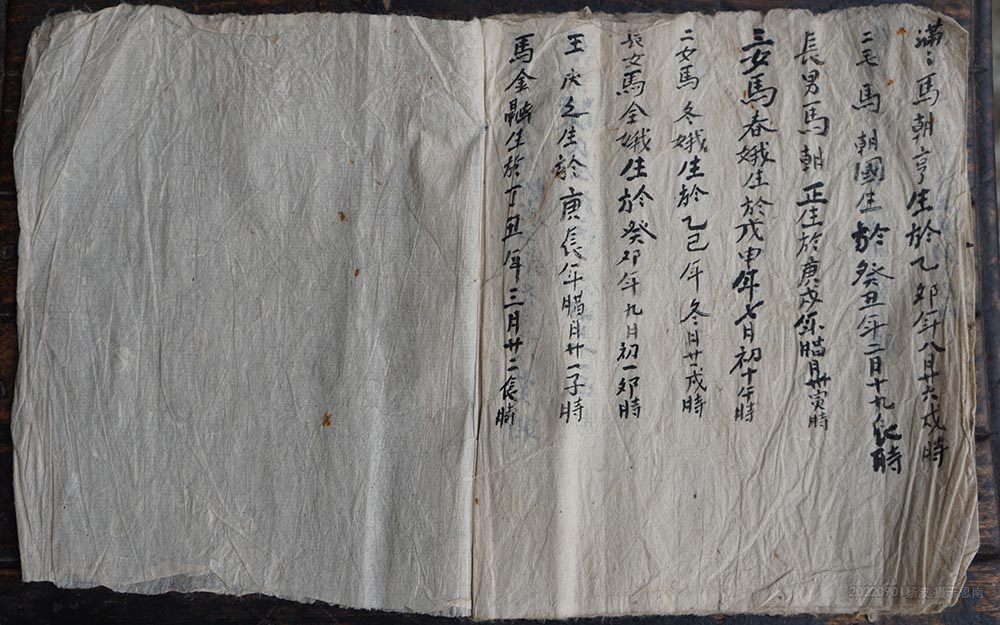 馬金生於丁丑年三月廿二辰時
王庆之生於庚辰年腊月廿一子時
長女馬金娥生於癸卯年九月初一卯時
二女馬冬娥生於乙巳年冬月廿一戌時
三女馬春娥生於戊申年七月初十午時
長男馬朝正生於庚戌年腊月卅寅時
二毛馬朝國生於癸丑年二月十九時
满〻馬朝亨生於乙卯年八月十六戌時
20220901杨波 摄于思南